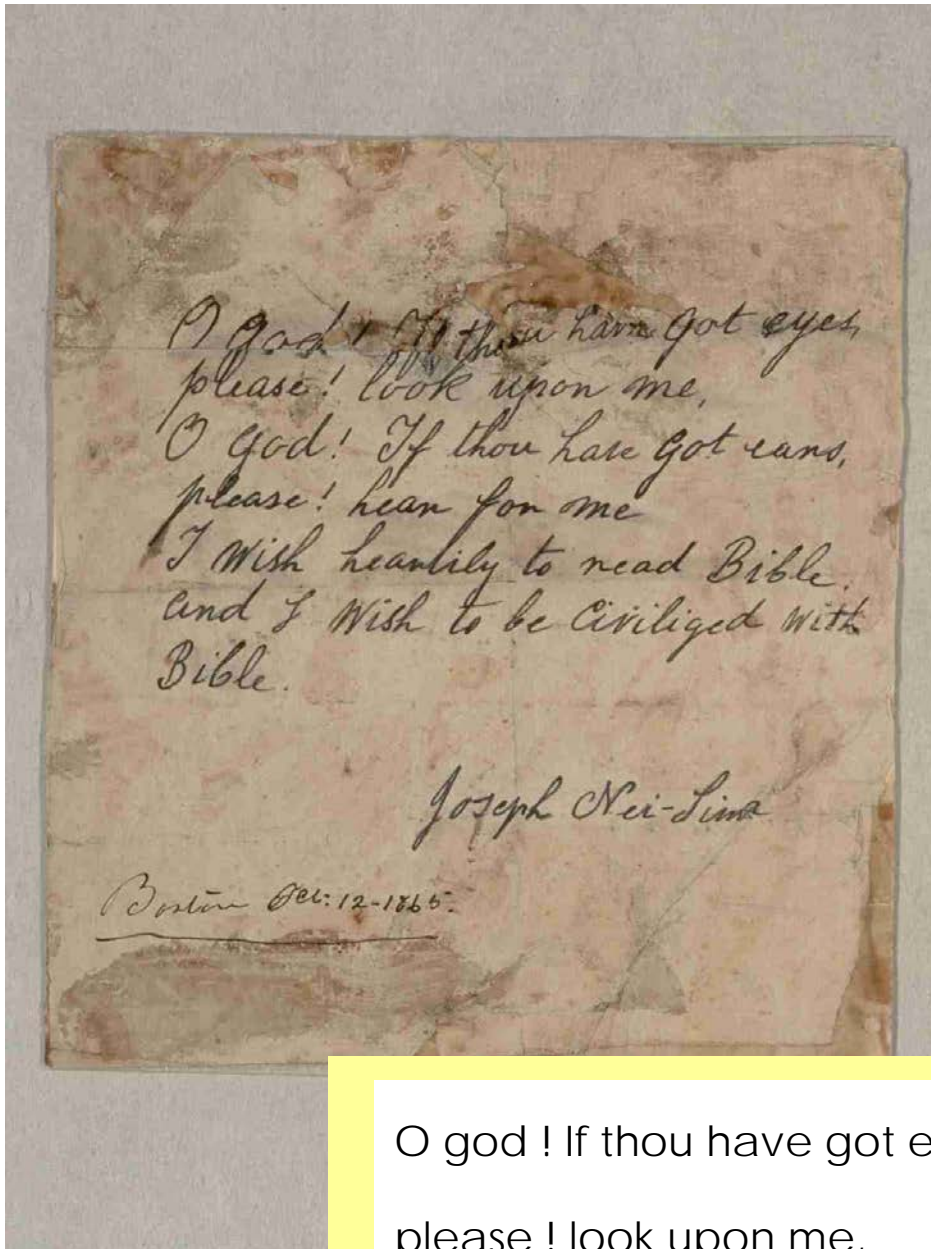 O god! If thou have got eyes,
please! look upon me,
O god! If thou have got ears,
please! hear for me
I wish heartily to read Bible.
and I wish to be Civiliged with
Bible.
Joseph Nei-Sima
Boston Oct: 12-1865.
O god ! If thou have got e
please ! look upon me.